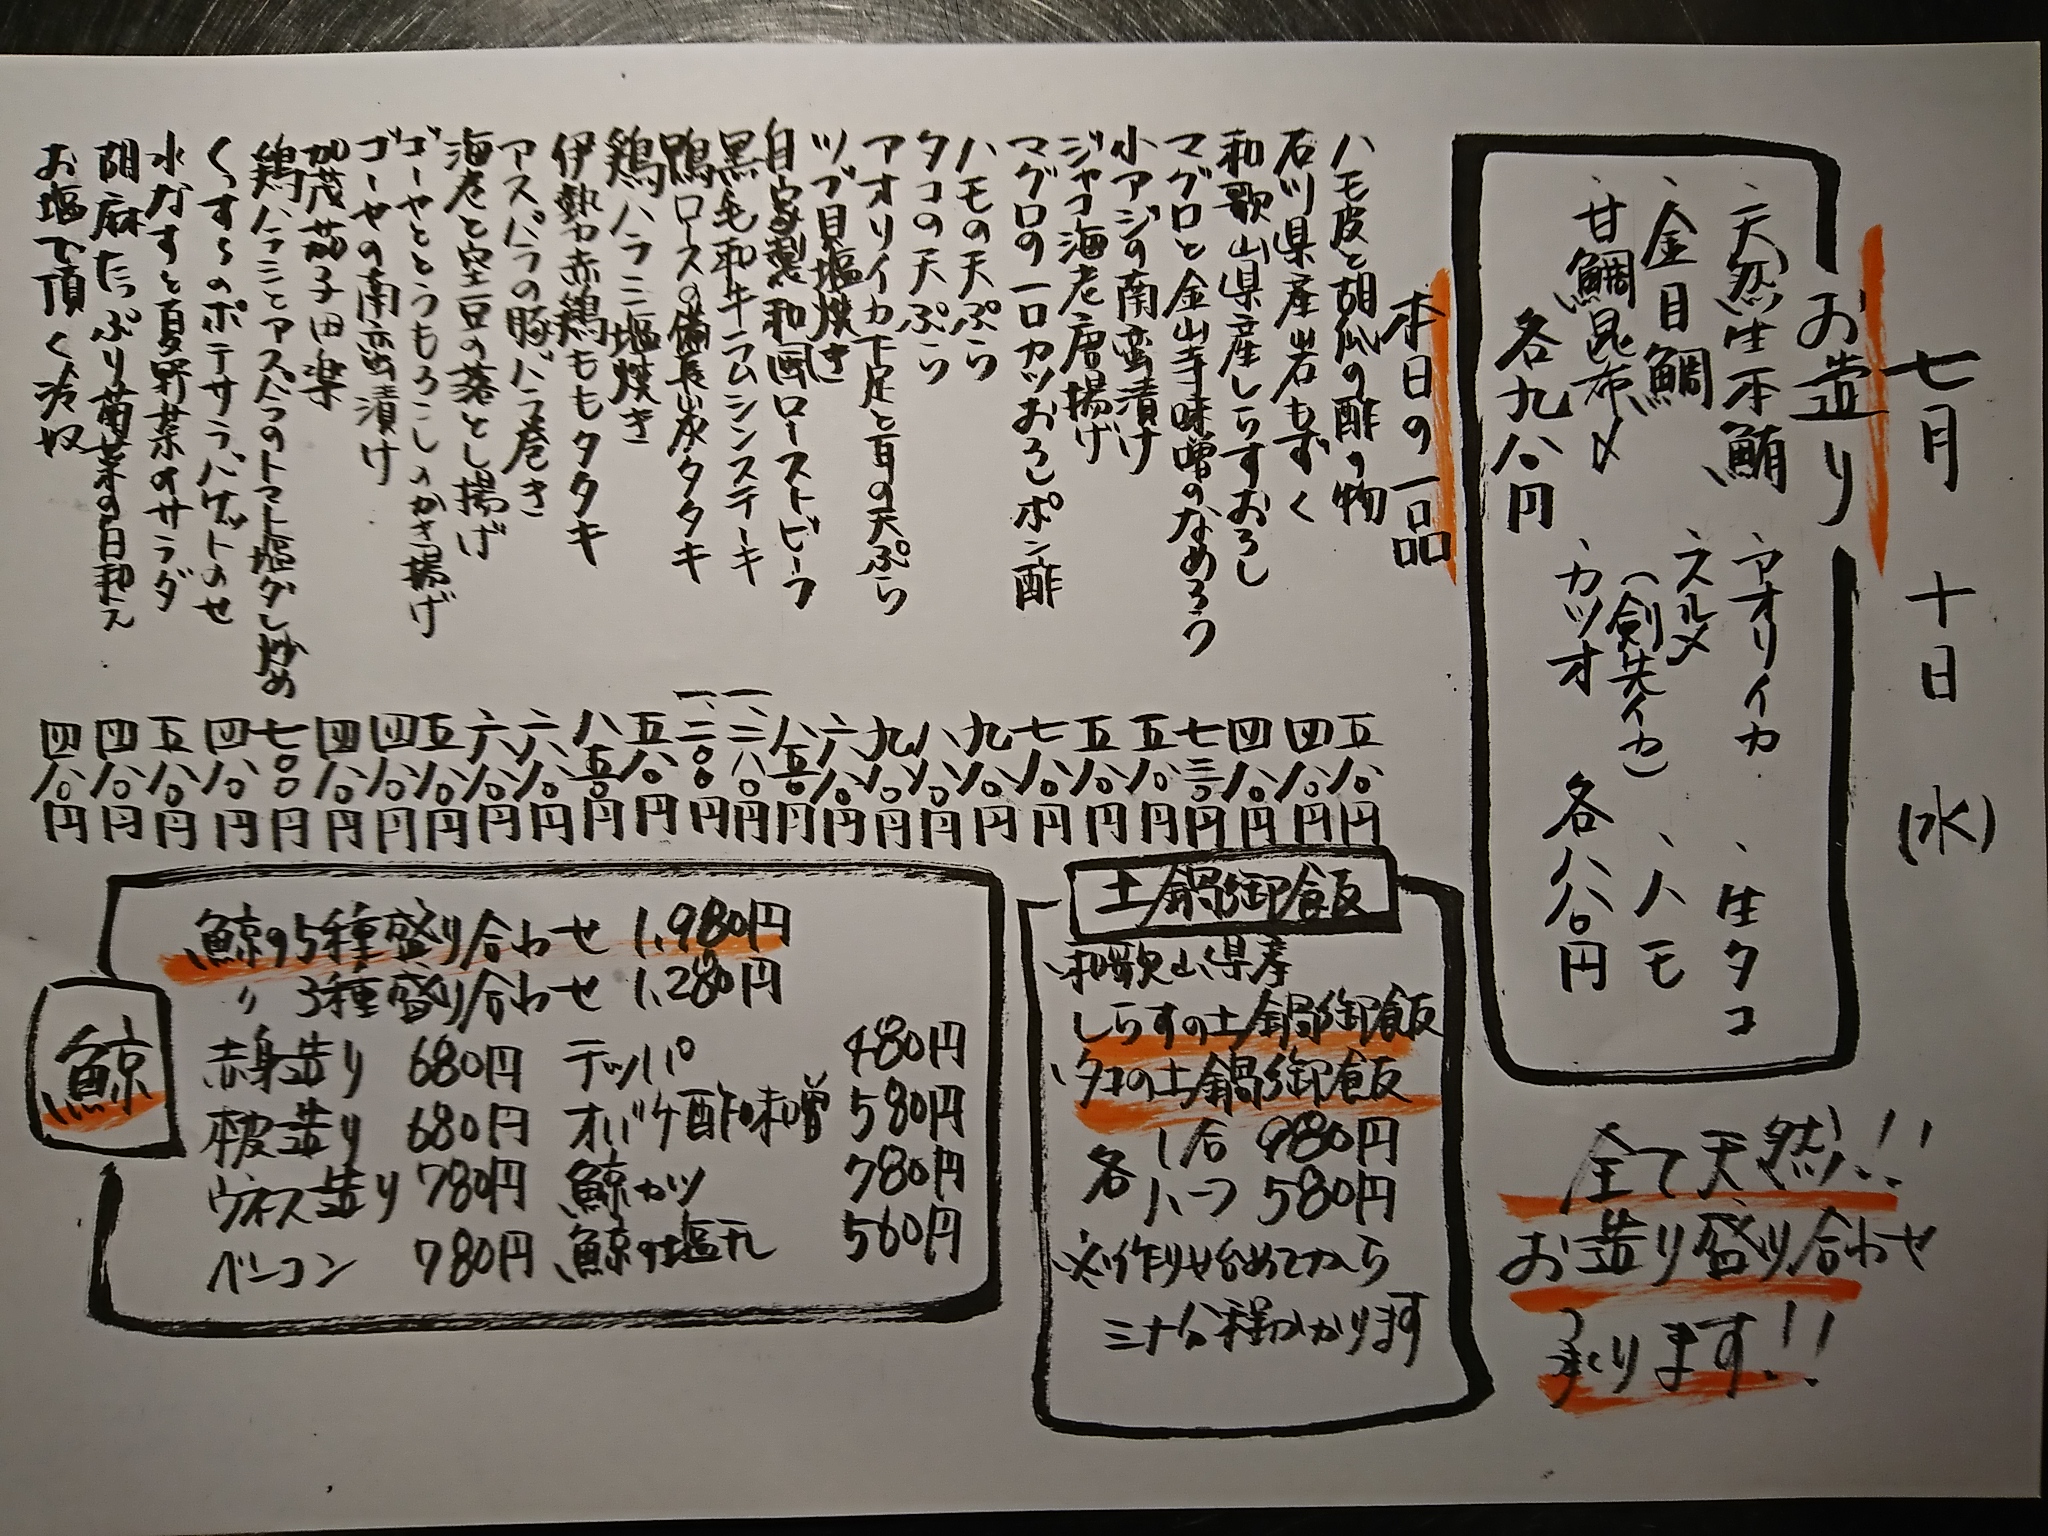 七月十日(水)
お造り
、天然生本鮪
、金目鯛
、甘鯛昆布〆
各九八〇円
、アオリイカ
、スルメ
(剣先イカ)
、カツオ
、生タコ
、ハモ
各八八〇円
全て天然!!
お造り盛り合わせ
承ります!!
本日の一品
ハモ皮と胡瓜の酢の物 五八〇円
石川県産岩もずく 四八〇円
和歌山県産しらすおろし 四八〇円
マグロと金山寺味噌のなめろう 七三〇円
小アジの南蛮漬け 五八〇円
ジャコ海老唐揚げ 五八〇円
マグロの一口カツおろしポン酢 七八〇円
ハモの天ぷら 九八〇円
タコの天ぷら 八八〇円
アオリイカ下足と耳の天ぷら 九八〇円
ツブ貝塩焼き 六八〇円
自家製和風ローストビーフ 八五〇円
黒毛和牛ラムシンステーキ 一、二八〇円
鴨ロースの備長炭タタキ 一、二〇〇円
鶏ハラミ塩焼き 五八〇円
伊勢赤鶏ももタタキ 八五〇円
アスパラの豚バラ巻き 六八〇円
海老と空豆の落とし揚げ 六八〇円
ゴーヤととうもろこしのかき揚げ 五八〇円
ゴーヤの南蛮漬け 四八〇円
加茂茄子田楽 四八〇円
鶏ハラミとアスパラのトマト塩ダレ炒め 七〇〇円
くんすらのポテサラバケットのせ 四八〇円
水なすと夏野菜のサラダ 五八〇円
胡麻たっぷり菊菜の白和え 四八〇円
お塩で頂く冷奴 四八〇円
土鍋御飯
、和歌山県産
しらすの土鍋御飯
、タコの土鍋御飯
各 1合 980円
ハーフ 580円
※作り始めてから
三十分程かかります
鯨
鯨の5種盛り合わせ 1,980円
〃 3種盛り合わせ 1,280円
赤身造り 680円 テッパ 480円
本皮造り 680円 オバケ酢味噌 580円
ウネス造り 780円 鯨カツ 780円
ベーコン 780円 鯨の塩丸 560円